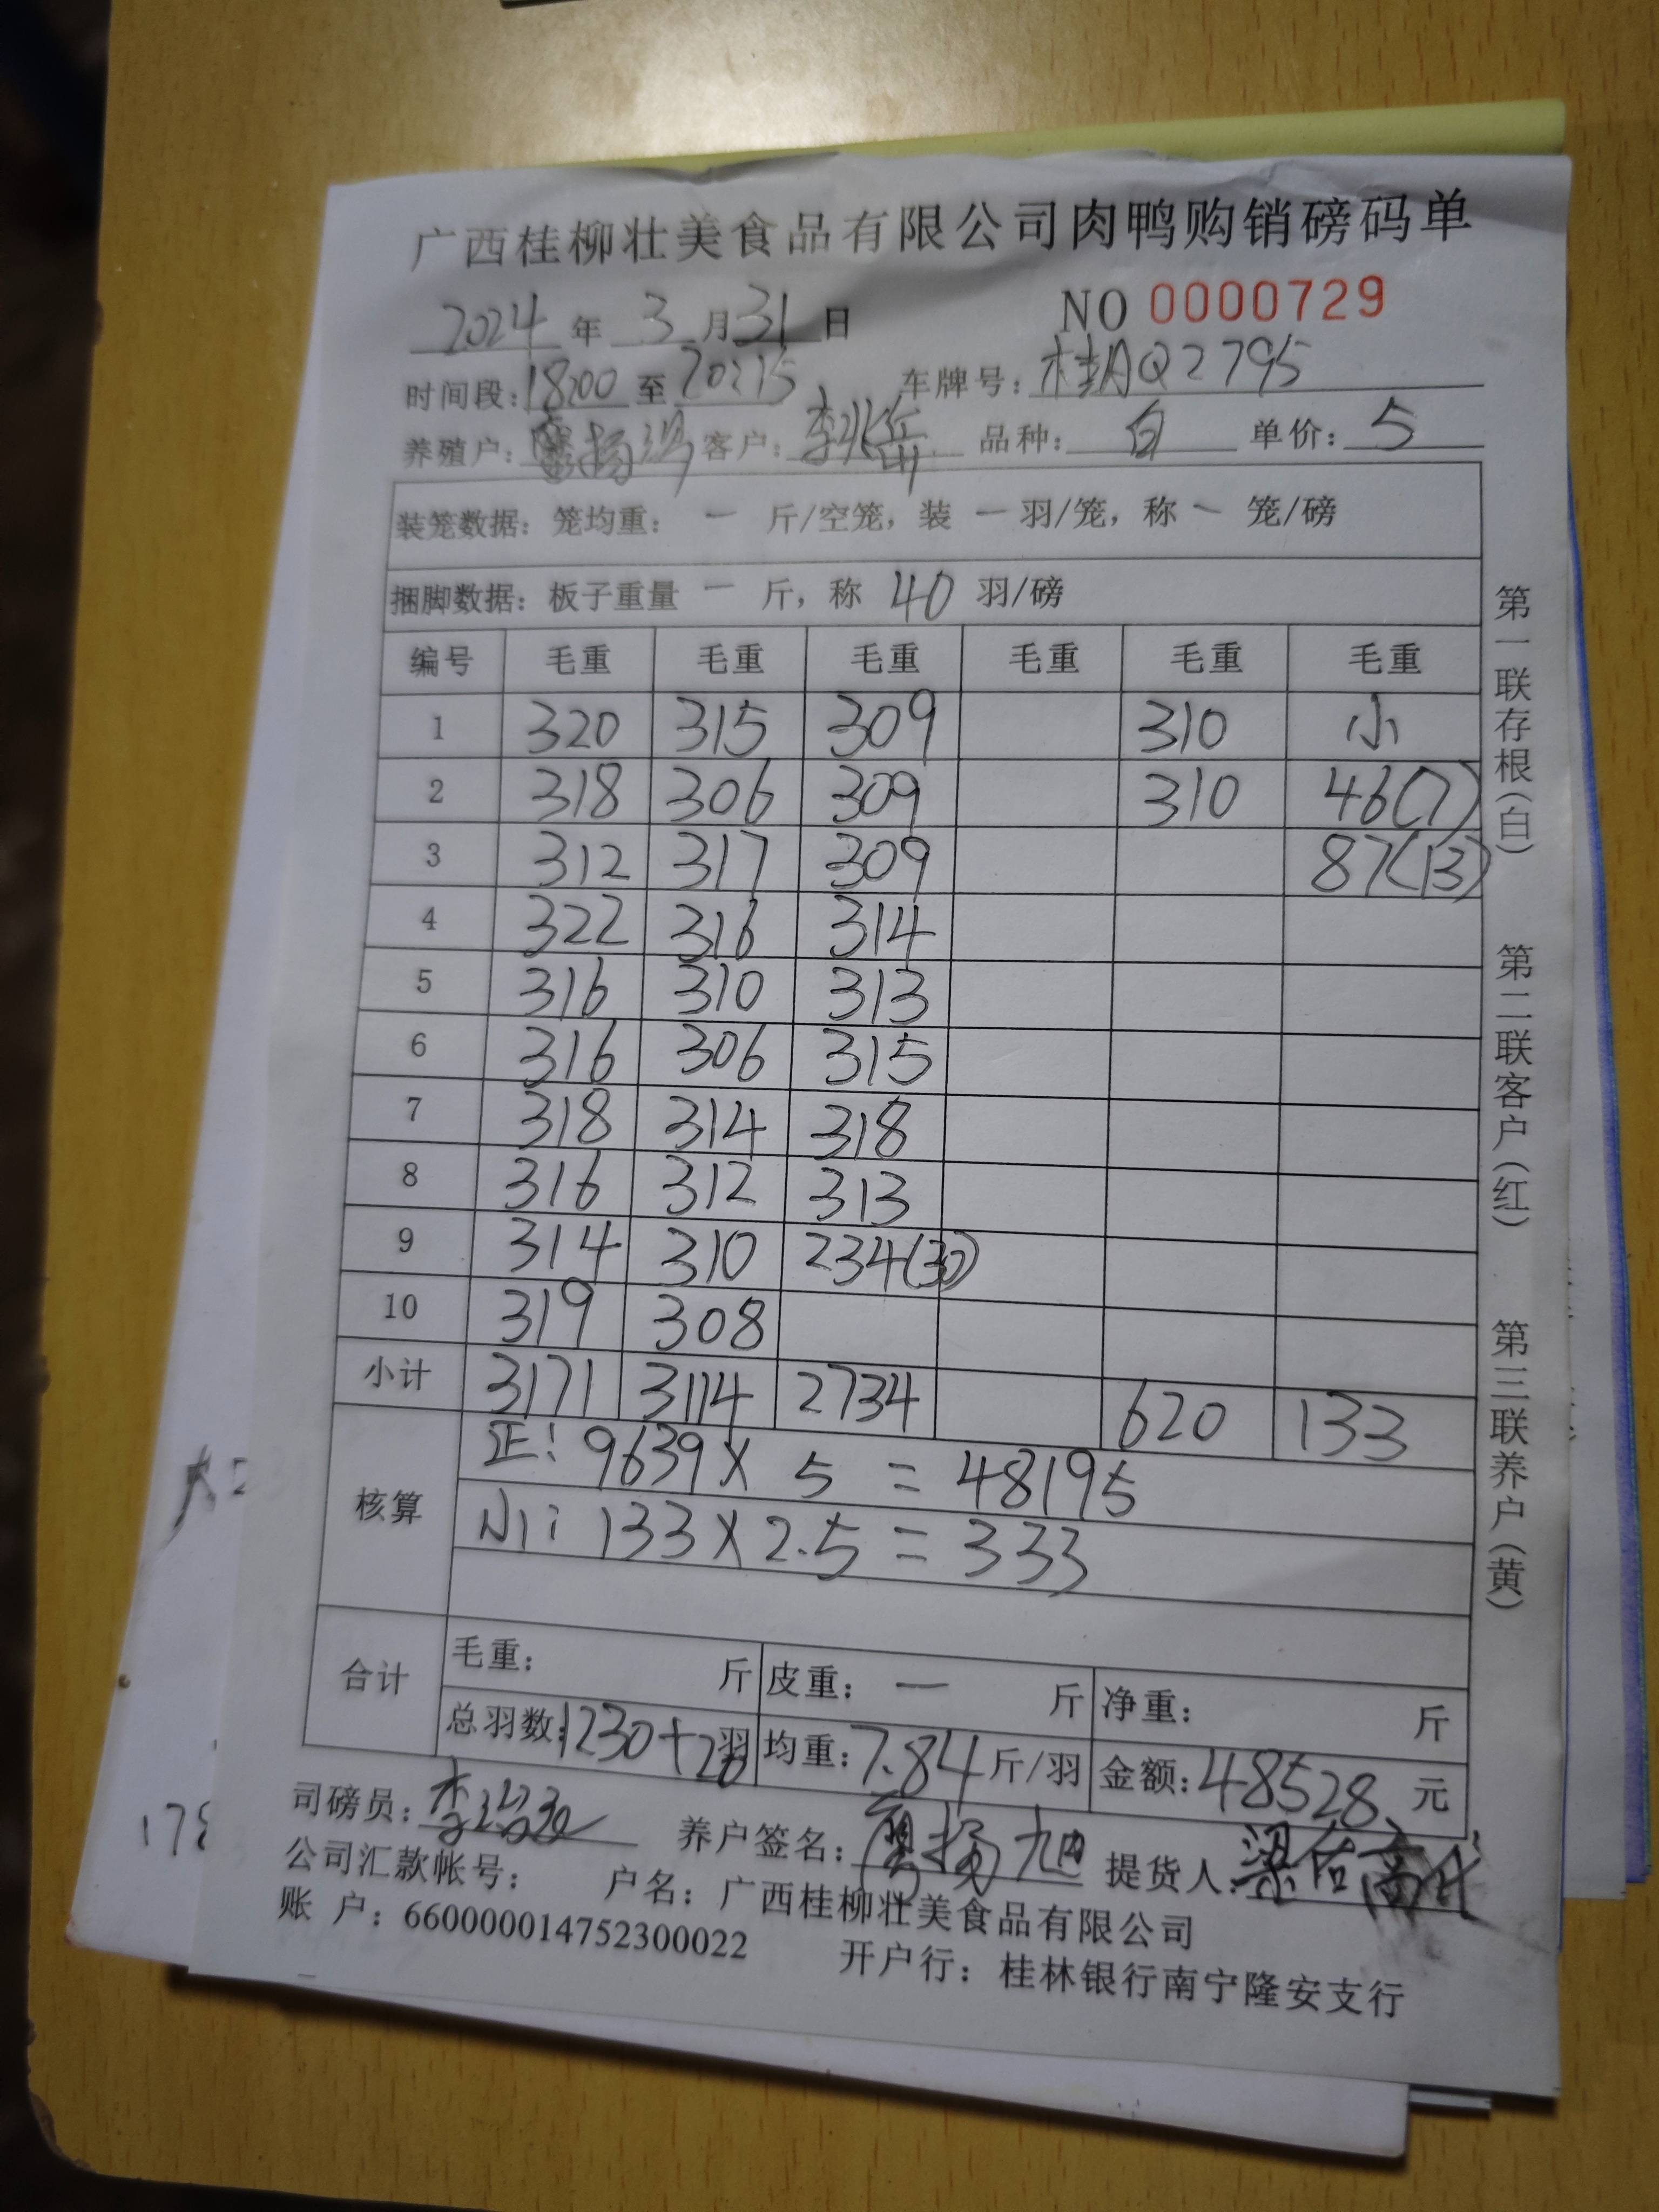 广西桂柳壮美食品有限公司肉鸭购销磅码单
2024 年 3 月 31 日 NO 0000729
时间段：18:00 至 20:15 车牌号：桂AQ2795
养殖户：扬 客户：李兆 品种：白 单价：5
装笼数据：笼均重：一 斤/空笼，装 一 羽/笼，称 一 笼/磅
捆脚数据：板子重量 一 斤，称 40 羽/磅
编号 毛重 毛重 毛重 毛重 毛重 毛重
1 320 315 309 310 小
2 318 306 309 310 46(7)
3 312 317 309 87(13)
4 322 316 314
5 316 310 313
6 316 306 315
7 318 314 318
8 316 312 313
9 314 310 234(30)
10 319 308
小计 3171 3114 2734 620 133
核算
正：9639 X 5 = 48195
小：133 X 2.5 = 333
合计
毛重： 斤 皮重：一 斤 净重： 斤
总羽数：1230+20羽 均重：7.84 斤/羽 金额：48528 元
司磅员：李 养户签名：扬旭 提货人：梁
公司汇款帐号： 户名：广西桂柳壮美食品有限公司
账户：660000014752300022 开户行：桂林银行南宁隆安支行
第一联存根（白） 第二联客户（红） 第三联养户（黄）
178